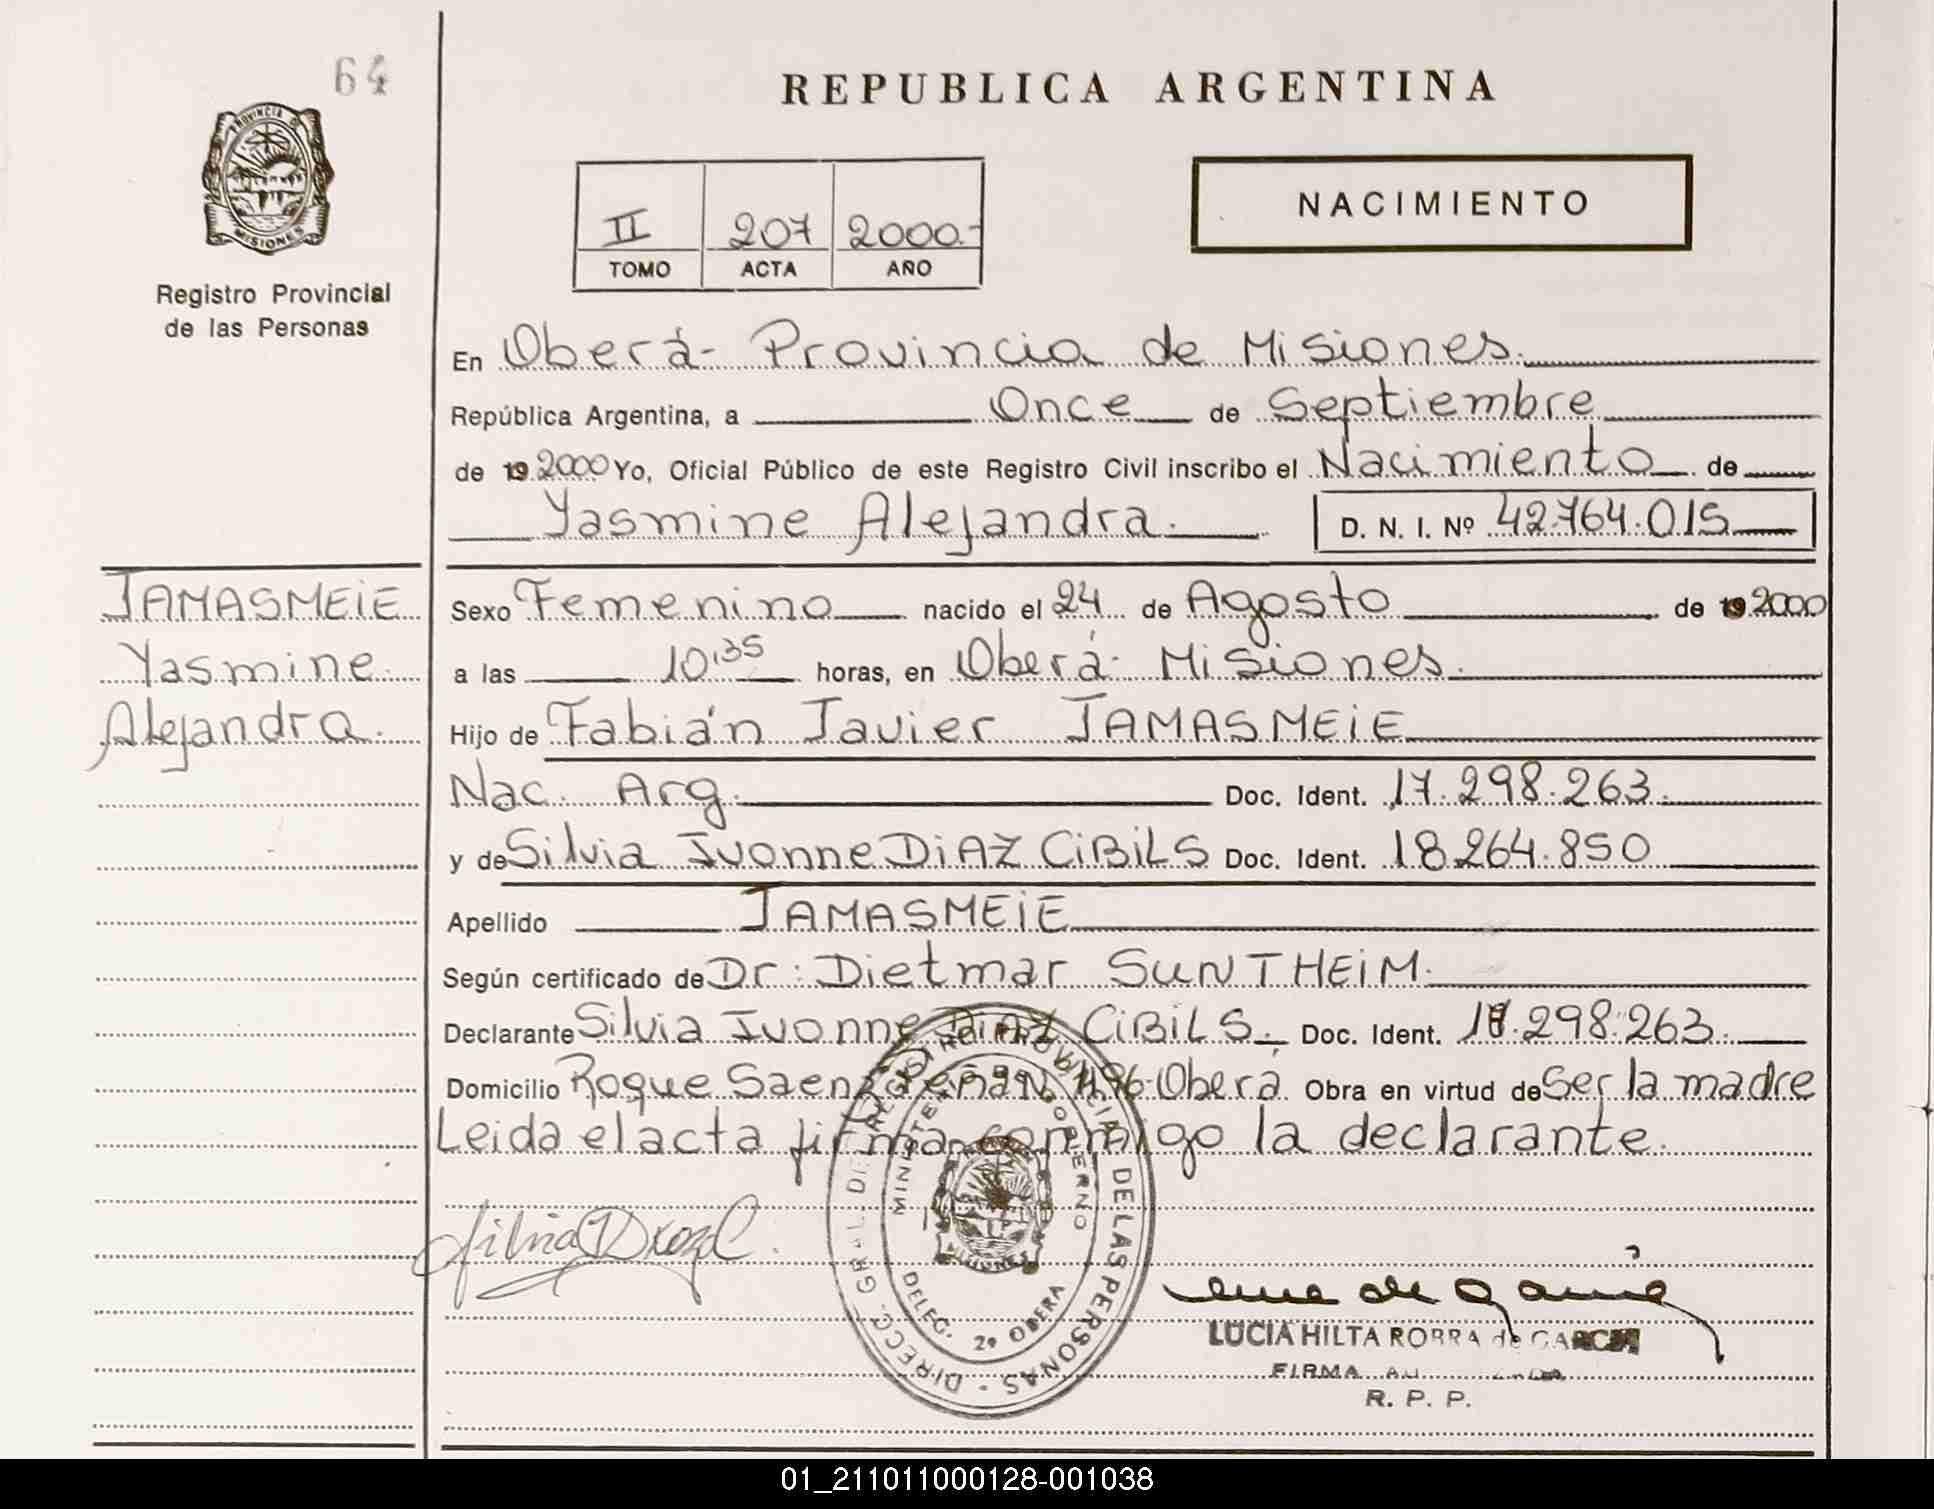 64
PROVINCIA DE
MISIONES
Registro Provincial
de las Personas
REPUBLICA ARGENTINA
II 207 2000.-
TOMO ACTA AÑO
NACIMIENTO
En Oberá- Provincia de Misiones.
República Argentina, a Once de Septiembre
de 19 2000 Yo, Oficial Público de este Registro Civil inscribo el Nacimiento de
Yasmine Alejandra. D. N. I. Nº 42.764.015
JAMASMEiE
Yasmine
Alejandra.
Sexo Femenino nacido el 24 de Agosto de 19 2000
a las 10:35 horas, en Oberá- Misiones.
Hijo de Fabián Javier JAMASMEiE
Nac. Arg. Doc. Ident. 17.298.263.
y de Silvia Ivonne DiAZ CiBiLS Doc. Ident. 18.264.850
Apellido JAMASMEiE
Según certificado de Dr: Dietmar SUNTHEiM.
Declarante Silvia Ivonne DiAZ CiBiLS. Doc. Ident. 298.263.
Domicilio Roque Saenz Peña Nº 1196-Oberá Obra en virtud de Ser la madre
Leida el acta firman conmigo la declarante.
DIRECC. GRAL. DEL REGISTRO PROVINCIAL DE LAS PERSONAS -
MINISTERIO DE GOBIERNO
MISIONES
DELEG. 2º OBERA
LUCIA HILTA ROBRA de GARCIA
FIRMA
R. P. P.
01_211011000128-001038